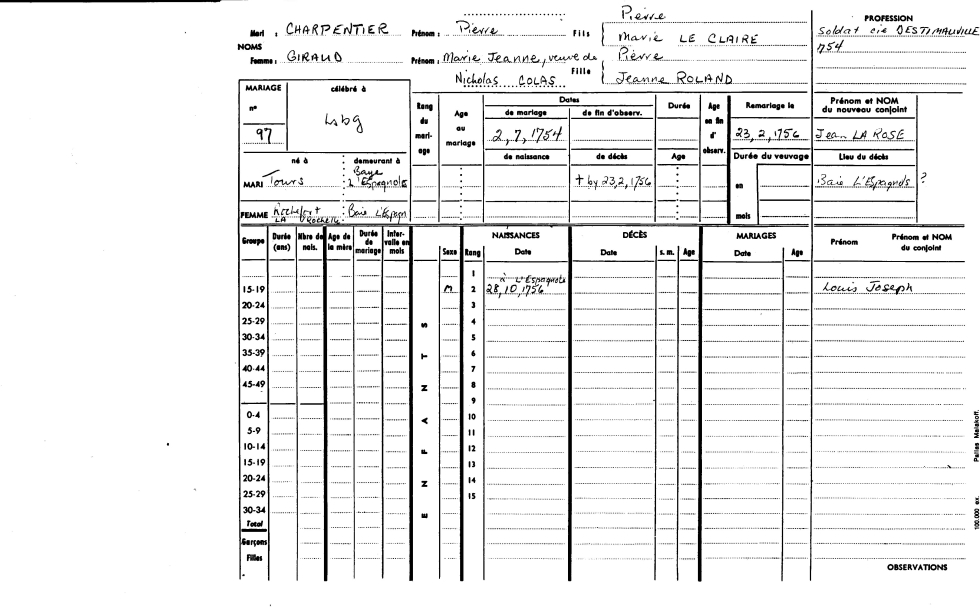 Pierre
Mari : CHARPENTIER Prénom : Pierre Fils Marie LE CLAIRE
PROFESSION
Soldat cie DESTIMAUVILLE
1754
NOMS
Femme : GIRAUD Prénom : Marie Jeanne, veuve de Fille Pierre
Nicholas COLAS Jeanne ROLAND
MARIAGE célébré à
n° 97 Lsbg
Rang du mariage
Age au mariage
Dates
de mariage de fin d'observ.
2,7,1754
Durée
Age en fin d'observ.
Remariage le
23,2,1756
Prénom et NOM du nouveau conjoint
Jean LA ROSE
né à demeurant à
de naissance de décès Age
Durée du veuvage
Lieu du décès
MARI Tours Baye L'Espagnole
+ by 23,2,1756
en
Baie L'Espagnols ?
FEMME Rochefort LA Rochelle Baie L'Espagn
mois
Groupe
Durée (ans)
Nbre de nais.
Age de la mère
Durée de mariage
Intervalle en mois
ENFANTS
Sexe
Rang
NAISSANCES
Date
DÉCÈS
Date
s. m.
Age
MARIAGES
Date
Age
Prénom
Prénom et NOM du conjoint
1
à L'Espagnole
15-19 M 2 28,10,1756 Louis Joseph
20-24 3
25-29 4
30-34 5
35-39 6
40-44 7
45-49 8
9
0-4 10
5-9 11
10-14 12
15-19 13
20-24 14
25-29 15
30-34
Total
Garçons
Filles
OBSERVATIONS
100.000 ex. Pallas Malakoff.